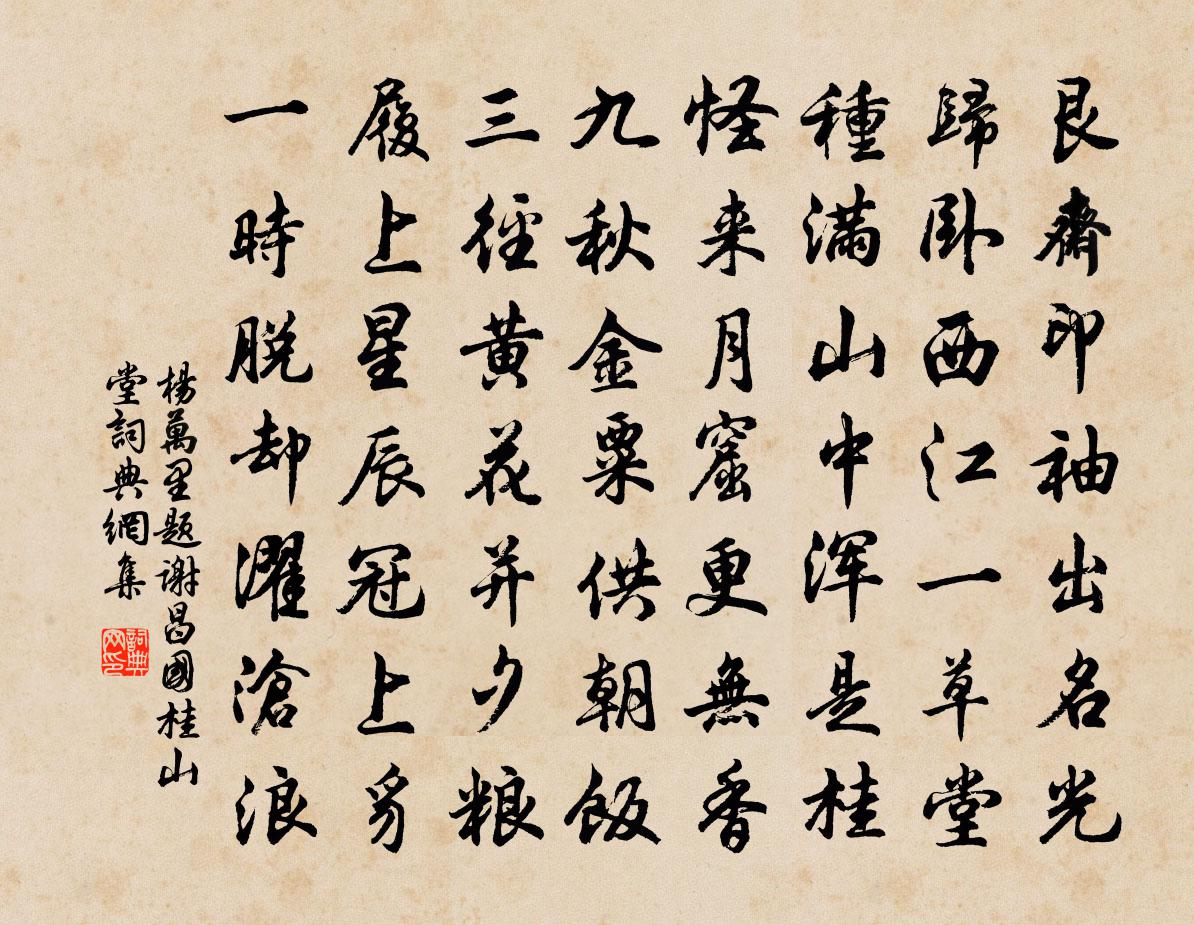 艮齋印袖出名光
歸卧西江一草堂
種滿山中浑是桂
怪来月窟更無香
九秋金粟供朝飯
三徑黄花并夕粮
履上星辰冠上豸
一時脱却濯滄浪
楊萬里题謝昌國桂山
堂詞典網集
詞典网印